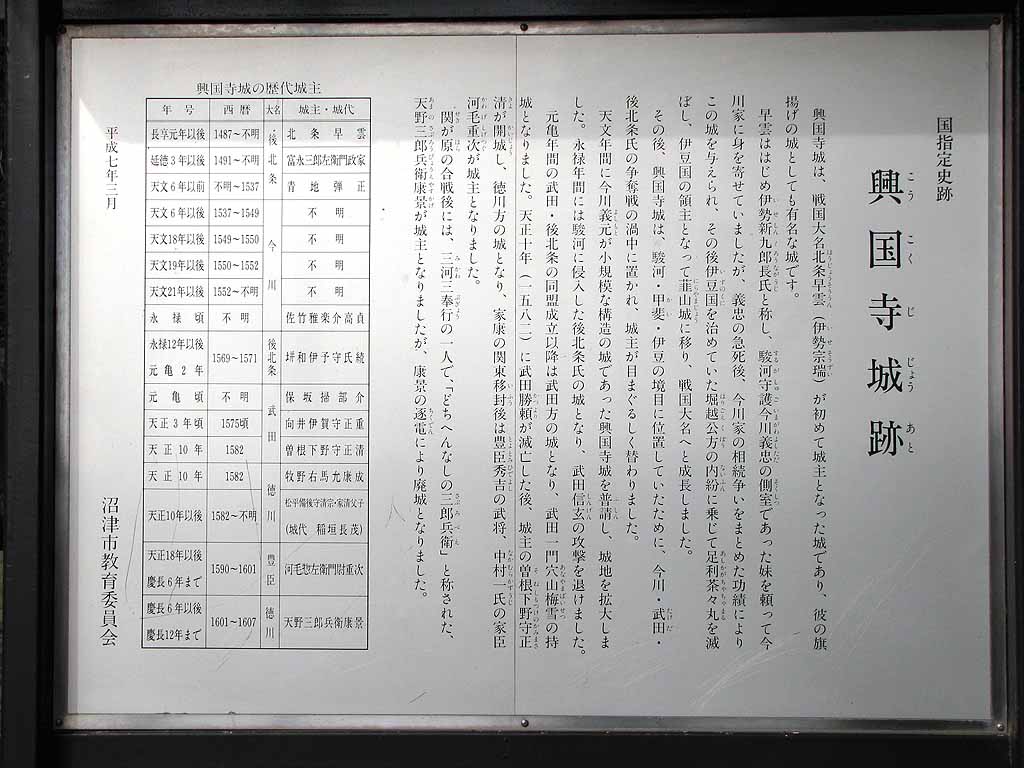 国指定史跡
興国寺城跡
こうこくじじょうあと
興国寺城は、戦国大名北条早雲(伊勢宗瑞)が初めて城主となった城であり、彼の旗
揚げの城としても有名な城です。
早雲ははじめ伊勢新九郎長氏と称し、駿河守護今川義忠の側室であった妹を頼って今
川家に身を寄せていましたが、義忠の急死後、今川家の相続争いをまとめた功績により
この城を与えられ、その後伊豆国を治めていた堀越公方の内紛に乗じて足利茶々丸を滅
ぼし、伊豆国の領主となって韮山城に移り、戦国大名へと成長しました。
その後、興国寺城は、駿河・甲斐・伊豆の境目に位置していたために、今川・武田・
後北条氏の争奪戦の渦中に置かれ、城主が目まぐるしく替わりました。
天文年間に今川義元が小規模な構造の城であった興国寺城を普請し、城地を拡大しま
した。永禄年間には駿河に侵入した後北条氏の城となり、武田信玄の攻撃を退けました。
元亀年間の武田・後北条の同盟成立以降は武田方の城となり、武田一門穴山梅雪の持
城となりました。天正十年(一五八二)に武田勝頼が滅亡した後、城主の曽根下野守正
清が開城し、徳川方の城となり、家康の関東移封後は豊臣秀吉の武将、中村一氏の家臣
河毛重次が城主となりました。
関が原の合戦後には、三河三奉行の一人で、「どちへんなしの三郎兵衛」と称された、
天野三郎兵衛康景が城主となりましたが、康景の逐電により廃城となりました。
興国寺城の歴代城主
年号 西暦 大名 城主・城代
長享元年以後 1487~不明 後北条 北条早雲
延徳3年以後 1491~不明 富永三郎左衛門政家
天文6年以前 不明~1537 青地弾正
天文6年以後 1537~1549 今川 不明
天文18年以後 1549~1550 不明
天文19年以後 1550~1552 不明
天文21年以後 1552~不明 不明
永禄頃 不明 佐竹雅楽介高貞
永禄12年以後 元亀2年 1569~1571 後北条 垪和伊予守氏続
元亀頃 不明 武田 保坂掃部介
天正3年頃 1575頃 向井伊賀守正重
天正10年 1582 曽根下野守正清
天正10年 1582 徳川 牧野右馬允康成
天正10年以後 1582~不明 松平備後守清宗・家清父子
(城代 稲垣長茂)
天正18年以後 慶長6年まで 1590~1601 豊臣 河毛惣左衛門尉重次
慶長6年以後 慶長12年まで 1601~1607 徳川 天野三郎兵衛康景
平成七年三月
沼津市教育委員会